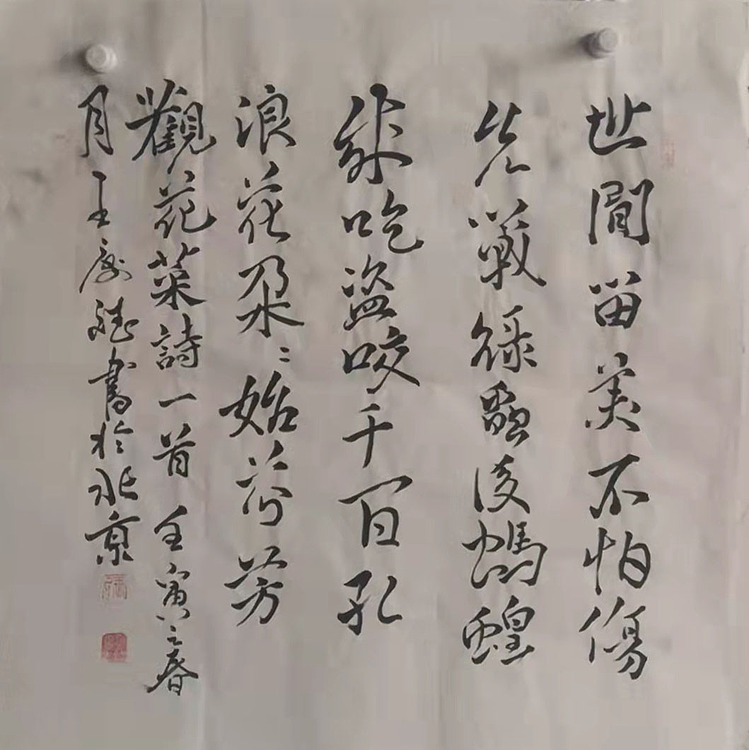 世間留美不怕傷
先戰綠後螞蝗
吃盜咬千百孔
浪花朵々始芬芳
觀花菜詩一首 壬寅之春
月王慶書於北京